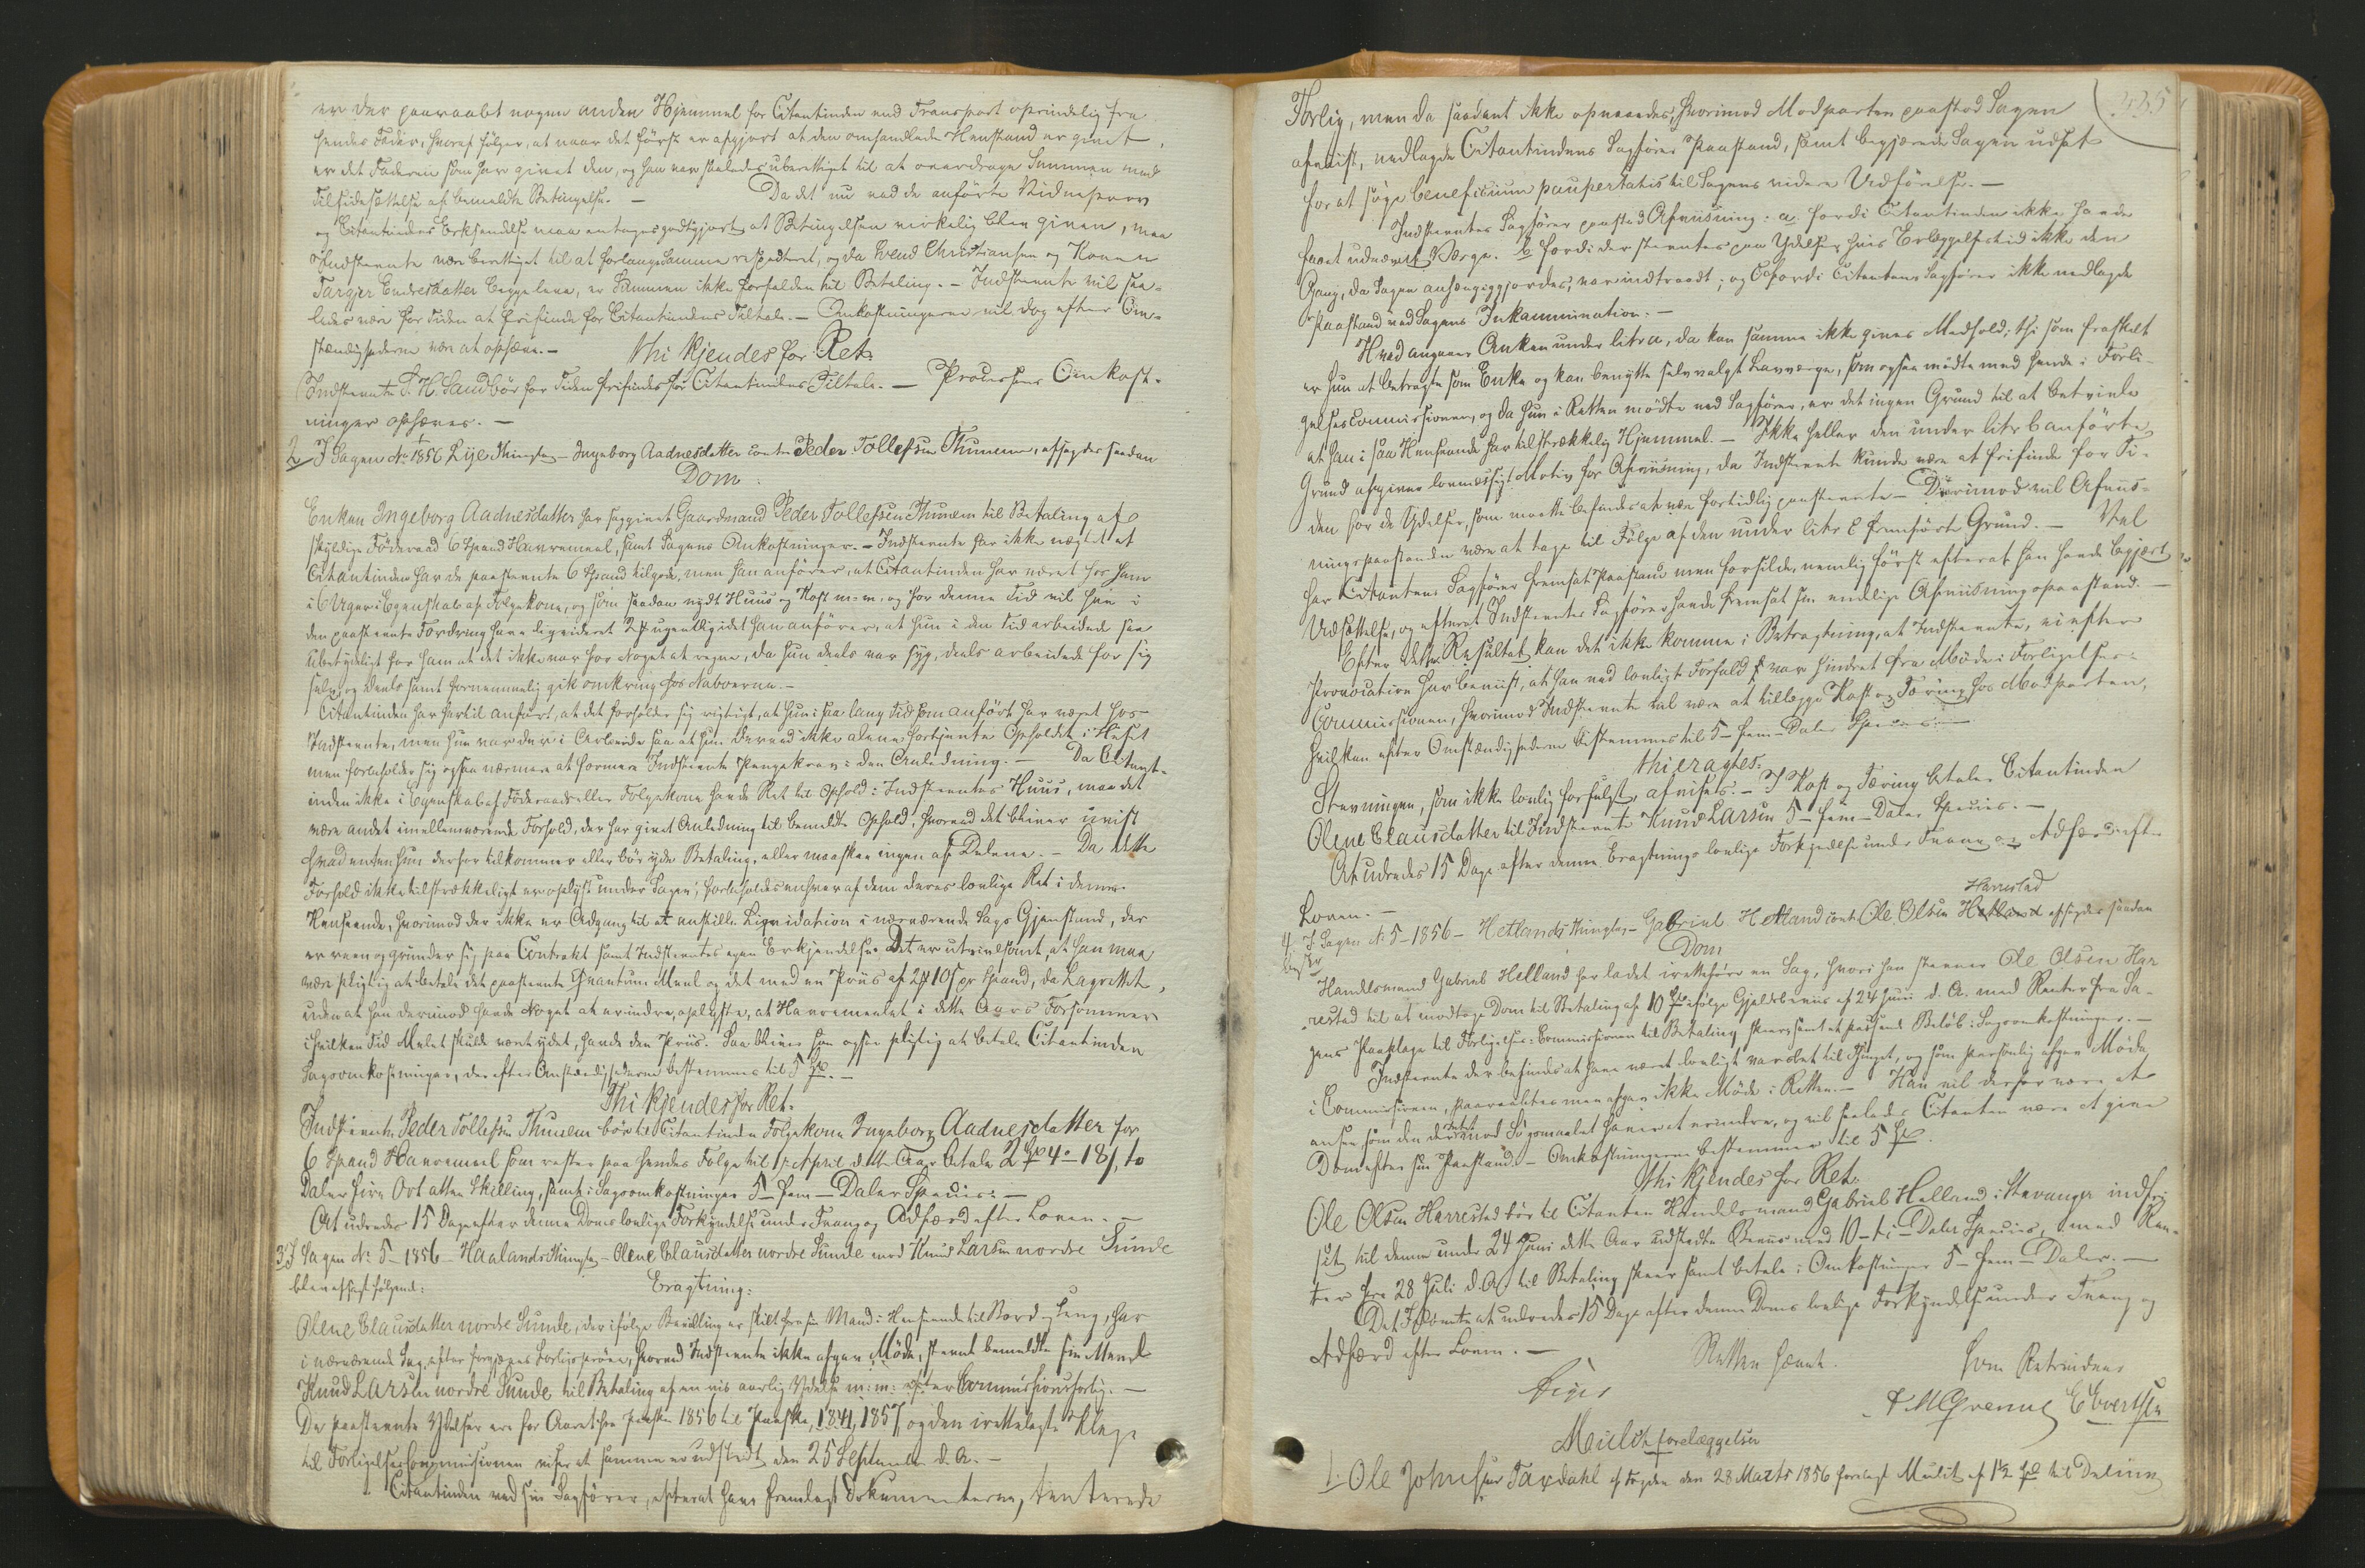 er der paaraabt nogen anden Hjemmel for Citantinden end Transport oprindelig fra
hendes Fader, hvoraf følger, at naar det først er afgjort at den omhandlede Henstand er givet,
er det Faderen som har givet den, og han var saaledes uberettiget til at overdrage Summen med
Tilsidesættelse af bemeldte Betingelse. — Da det nu ved de anførte Vidneprov
og Citantindens Erkjendelse maa antages godtgjort at Betingelsen virkelig blev given, maa
Indstevnte være berettiget til at forlange samme respekteret, og da Svend Christiansen og Konen
Targjer Endresdatter begge leve, er Summen ikke forfalden til Betaling. — Indstevnte vil saa-
ledes være for Tiden at frifinde for Citantindens Tiltale. — Omkostningerne vil dog efter Om-
stændighederne være at ophæve. —
Thi kjendes for Ret:
Indstevnte T. H. Sandbør for Tiden frifindes for Citantindens Tiltale. — Processens Omkost-
ninger ophæves. —
2 I Sagen No 1 1856 Lye Thinglag — Ingeborg Aadnesdatter contra Peder Tollefsen Thunem, afsagdes saadan
Dom:
Enken Ingeborg Aadnesdatter har sagsøgt Gaardmand Peder Tollefsen Thunem til Betaling af
skyldige Föderaad 6 Spand Havremeel, samt Sagens Omkostninger. — Indstevnte har ikke nægtet at
Citantinden har de paastevnte 6 Spand tilgode, men han anfører, at Citantinden har været hos ham
i 6 Uger i Egenskab af Folgekone, og som saadan nydt Huus og Kost m: m, og for denne Tid vil han i
den paastevnte Fordring have liqvideret ugentlig idet han anfører, at hun i den Tid arbeidede saa
ubetydeligt for ham at det ikke var for Noget at regne, da hun deels var syg, deels arbeidede for sig
selv og deels samt fornemmelig gik omkring hos Naboerne. —
Citantinden har hertil anført, at det forholder sig rigtigt, at hun i saa lang Tid som anført har været hos
Indstevnte, men hun var der i Arbeide saa at hun derved ikke alene fortjente Opholdet
men forbeholder sig ogsaa nærmere at formere Indstevnte Pengekrav i den Anledning. — Da Citant-
inden ikke i Egenskab af Föderaads eller Folgekone havde Ret til Ophold i Indstevntes Huus, maa det
være andet imellemværende Forhold, der har givet Anledning til bemeldte Ophold, hvorved det bliver uvist
hvad enten hun derfor tilkommer eller bør yde Betaling, eller maaskee ingen af Delene. — Da dette
Forhold ikke tilstrækkeligt er oplyst under Sagen, forbeholdes enhver af dem deres lovlige Ret i denne
Henseende, hvorimod der ikke er Adgang til at anstille Liqvidation i nærværende Sags Gjenstand, der
er reen og grunder sig paa Contrakt samt Indstevntes egen Erkjendelse. Det er utvivlsomt, at han maa
være pligtig at betale det paastevnte Qvantum Meel og det med en Priis af pr Spand, da Lagrettet,
uden at han derimod havde Noget at erindre, oplyste, at Havremeelet i dette Aars Forsommer
i hvilken Tid Melet skulde været ydet, havde den Priis. Saa bliver han ogsaa pligtig at betale Citantinden
Sagsomkostninger, der efter Omstændighederne bestemmes til 5 Spd. —
Thi kjendes for Ret:
Indstevnte Peder Tollefsen Thunem bør til Citantinden Folgekone Ingeborg Aadnesdatter for
6 Spand Havremeel som rester paa hendes Folge til 1. April dette Aar betale 2 Spd 4 — 18 s, to
Daler fire Ort atten Skilling, samt i Sagsomkostninger 5 — fem — Daler Species. —
At udredes 15 Dage efter denne Doms lovlige Forkyndelse under Tvang og Adfærd efter Loven. —
3 I Sagen No 5 — 1856 — Haalands Thinglag — Olene Clausdatter nordre Sunde mod Knud Larsen nordre Sunde
blev afsagt følgende:
Eragtning:
Olene Clausdatter nordre Sunde, der ifølge Bevilling er skilt fra sin Mand i Henseende til Bord og Seng, har
i nærværende Sag, efter forgjæves Forligsprøve, hvorved Indstevnte ikke afgav Møde, stevnt bemeldte sin Mand
Knud Larsen nordre Sunde til Betaling af en vis aarlig Ydelse m: m: efter Commissionsforlig. —
De paastevnte Ydelser ere for Aaret fra Paaske 1856 til Paaske 1857, og den irettelagte Klage
til Forligelsescommissionen viser at samme er udstedt den 25 September d. A. —
Citantinden ved sin Sagfører, efterat have fremlagt Dokumenterne, tenterede
235
Forlig, men da saadant ikke opnaaedes, hvorimod Modparten paastod Sagen
afviist, nedlagde Citantindens Sagfører Paastand, samt begjærede Sagen udsat
for at søge beneficium paupertatis til Sagens videre Udførelse. —
Indstevntes Sagfører paastod Afviisning: a. fordi Citantinden ikke havde
havt udnævnt Værge. b fordi der stevntes paa Ydelser hvis Erlæggelsestid ikke den
Gang, da Sagen anhængiggjordes, var indtraadt, og C fordi Citantens Sagfører ikke nedlagde
Paastand ved Sagens Inkammination. —
Hvad angaaer Anken under litra a, da kan samme ikke gives Medhold; thi som fraskilt
er hun at betragte som Enke og kan benytte selvvalgt Laugværge, som ogsaa mødte med hende i Forli-
gelsescommissionen, og da hun i Retten mødte ved Sagfører, er det ingen Grund til at betvivle
at han i saa Henseende har tilstrækkelig Hjemmel. — Ikke heller den under litr b anførte
Grund afgiver lovmæssigt Motiv for Afviisning, da Indstevnte kunde være at frifinde for Ti-
den for de Ydelser, som maatte befindes at være fortidlig paastevnte — Derimod vil Afviis-
ningspaastanden være at tage til Følge af den under litr C fremførte Grund. — Vel
har Citantens Sagfører fremsat Paastand men forsilde, nemlig først efterat han havde begjært
Udsættelse, og efterat Indstevntes Sagfører havde fremsat sin endelige Afviisningspaastand. —
Efter dette Resultat kan det ikke komme i Betragtning, at Indstevnte, ei efter
Provocation har beviist, at han ved lovligt Forfald var hindret fra Møde i Forligelses-
Commissionen, hvorimod Indstevnte vil være at tillægge Kost og Tæring hos Modparten,
hvilken efter Omstændighederne bestemmes til 5 — fem — Daler Species. —
thi eragtes:
Stevningen, som ikke lovlig forfulgt, afvises. — I Kost og Tæring betaler Citantinden
Olene Clausdatter til Indstevnte Knud Larsen 5 — fem — Daler Species. —
At udredes 15 Dage efter denne Eragtnings lovlige Forkyndelse under Tvang og Adfærd efter
Loven. —
Harrestad
4 I Sagen No 5 — 1856 — Hetlands Thinglag — Gabriel Helland contra Ole Olsen Hetland afsagdes saadan
Dom
Handelsmand Gabriel Helland har ladet iretteføre en Sag, hvori han stevner Ole Olsen Har
restad til at modtage Dom til Betaling af 10 Spd ifølge Gjeldsbeviis af 24 Juni d. A. med Renter fra Sa-
gens Paaklage til Forligelses-Commissionen til Betaling skeer, samt et passende Beløb i Sagsomkostninger. —
Indstevnte der befindes at have været lovligt varslet til Thinget, og som personlig afgav Møde
i Commissionen, paaraabtes men afgav ikke Møde i Retten. — Han vil derfor være at
ansee som den der Intet mod Søgsmaalet haver at erindre, og vil saaledes Citanten være at give
Dom efter sin Paastand. — Omkostningerne bestemmes til 5 Spd.
thi kjendes for Ret:
Ole Olsen Harrestad bør til Citanten Handelsmand Gabriel Helland i Stavanger indfri
sit til denne under 24 Juni dette Aar udstedte Beviis med 10 — ti — Daler Species, med Ren-
ter fra 28 Juli d. A. til Betaling skeer samt betale i Omkostninger 5 — fem — Daler. —
Det Idømte at udredes 15 Dage efter denne Doms lovlige Forkyndelse under Tvang og
Adfærd efter Loven. —
Retten hævet.
Feyer
Som Retsvidner
E Evertsen
Mulctforelæggelser
1. Ole Johnsen Taxdahl af Fogden den 28 Marts 1856 forelagt Mulct af 1½ Spd til Deling